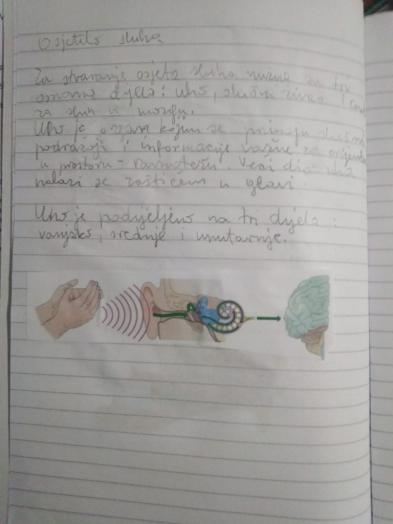 Osjetilo sluha
Za stvaranje osjeta sluha nužna su tri
osnovna dijela: uho, slušni živac i
za sluh u mozgu.
Uho je organ kojim se primaju slušni
podražaji i informacije važne za
u prostoru - ravnotežu. Veći dio uha
nalazi se zaštićen u glavi.
Uho je podijeljeno na tri dijela:
vanjsko, srednje i unutarnje.